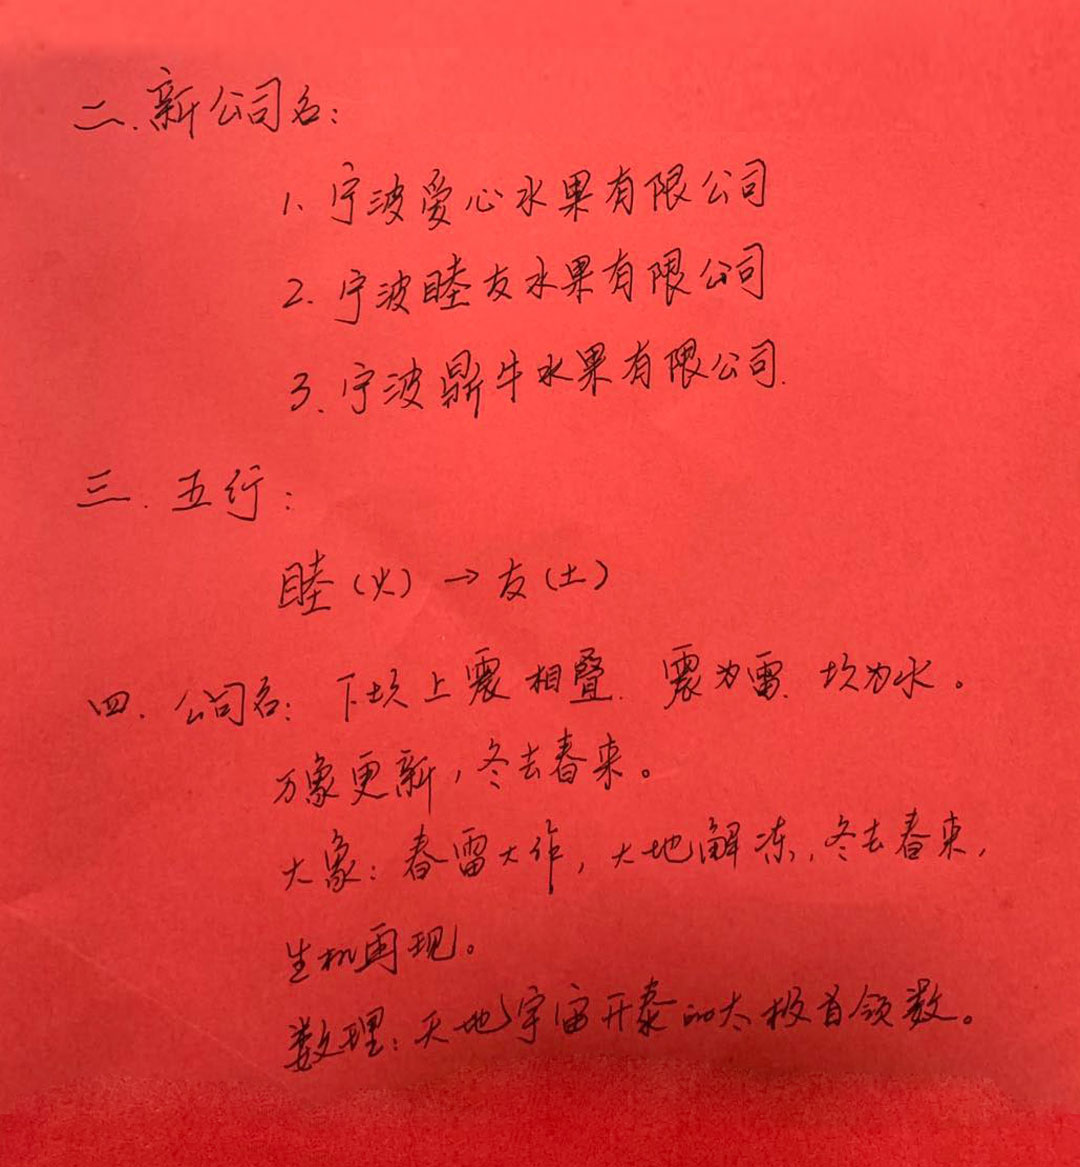 二.新公司名:
1.宁波爱心水果有限公司
2.宁波睦友水果有限公司
3.宁波鼎牛水果有限公司.
三.五行:
睦(火)→友(土)
四.公司名:下坎上震相叠.震为雷.坎为水。
万象更新,冬去春来。
大象:春雷大作,大地解冻,冬去春来,
生机再现。
数理:天地宇宙开泰的太极首领数。